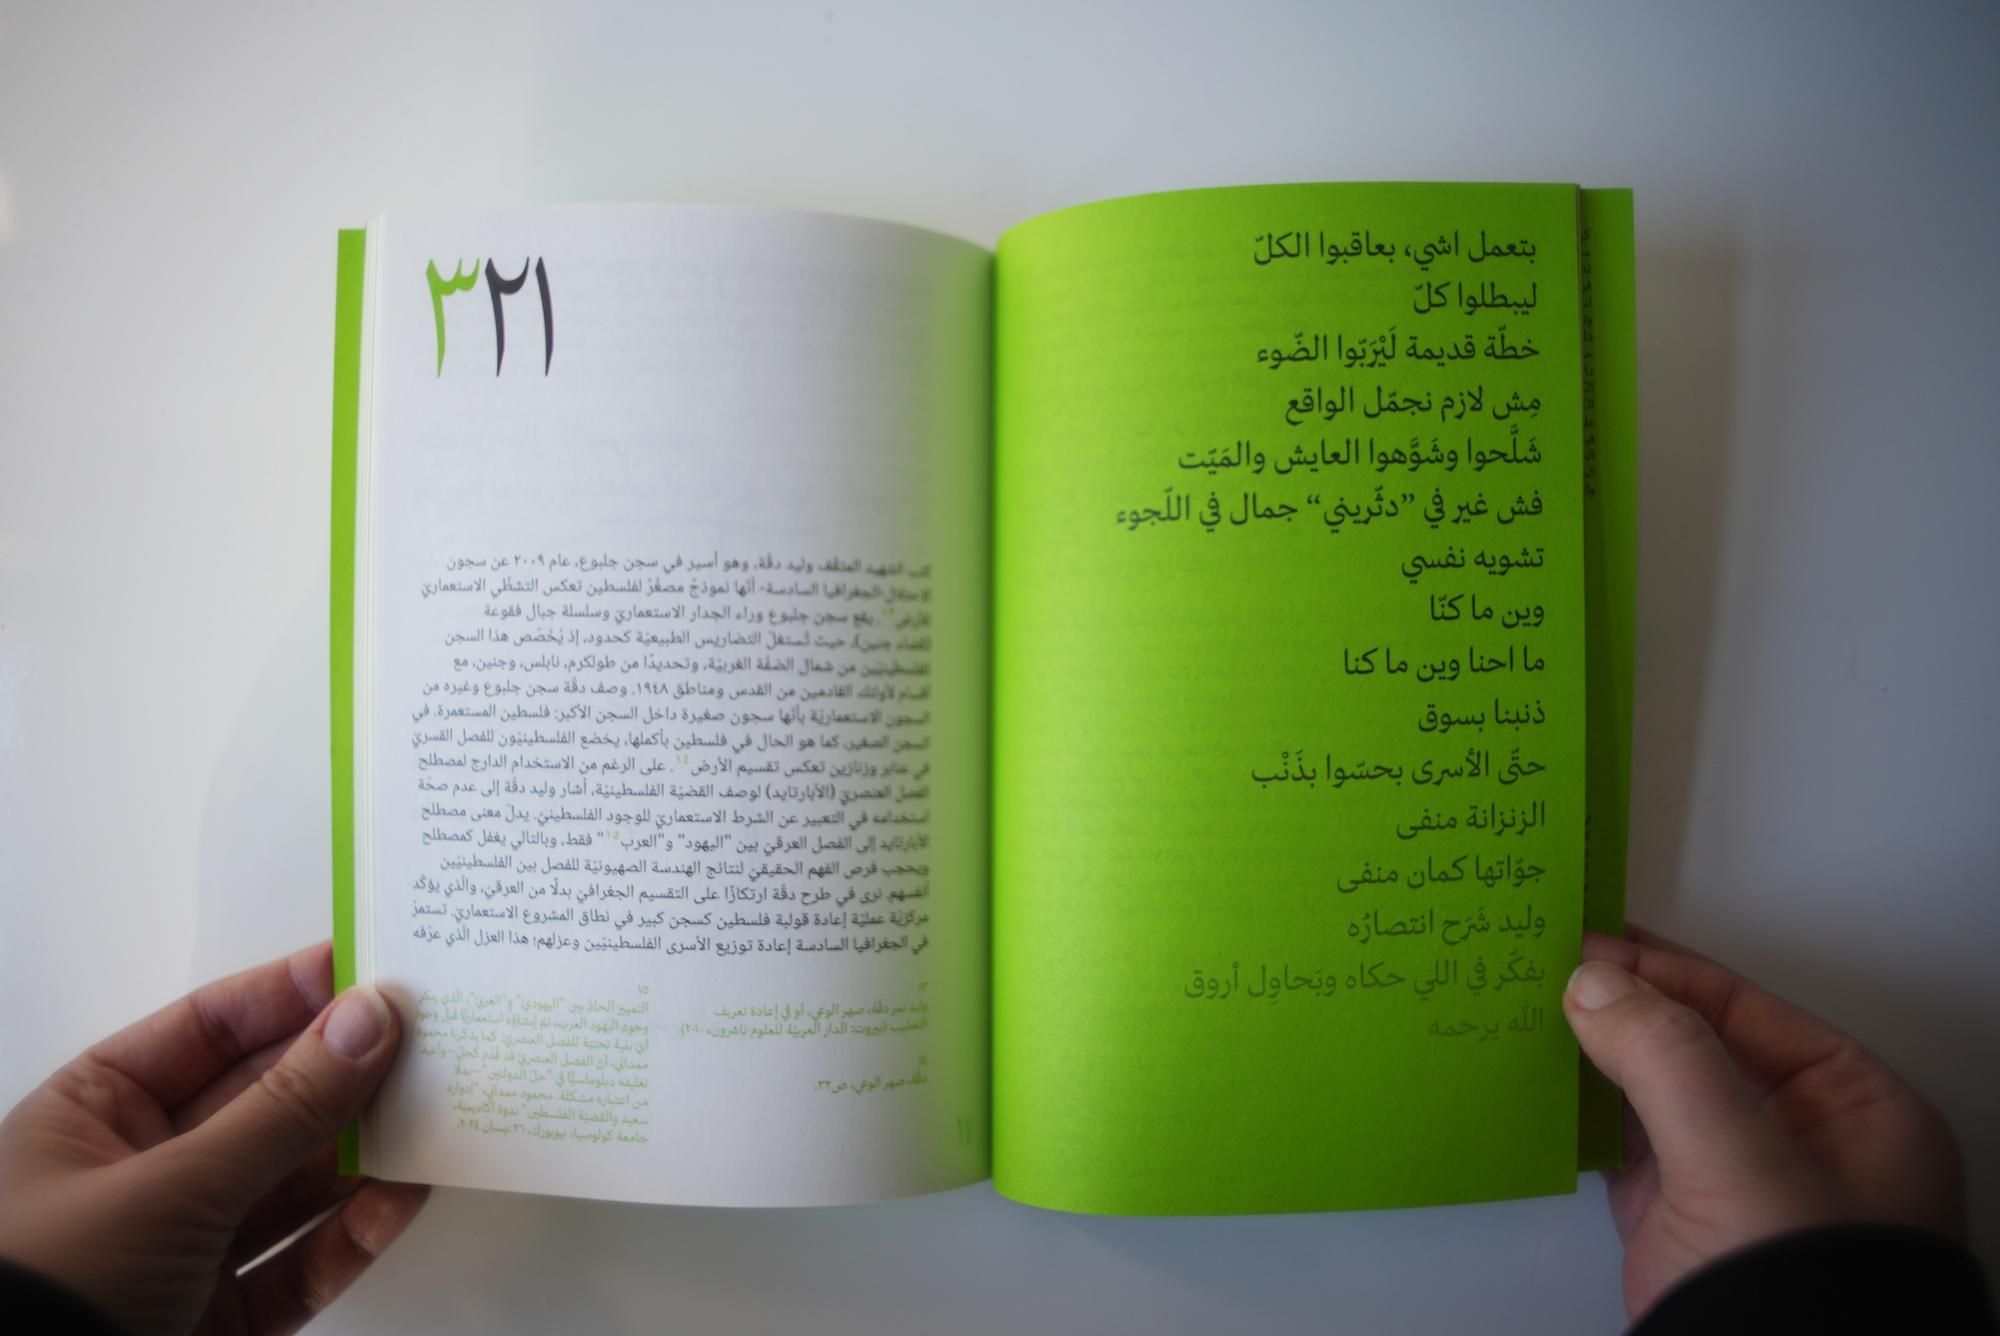 بتعمل اشي، بعاقبوا الكلّ
ليبطلوا كلّ
خطّة قديمة لَيْرَبّوا الضّوء
مِش لازم نجمّل الواقع
شَلَّحوا وشَوَّهوا العايش والمَيّت
فش غير في ”دثّريني“ جمال في اللّجوء
تشويه نفسي
وين ما كنّا
ما احنا وين ما كنا
ذنبنا بسوق
حتّى الأسرى بحسّوا بذَنْب
الزنزانة منفى
جوّاتها كمان منفى
وليد شَرَح انتصارُه
بفكّر في اللي حكاه وبَحاوِل أروق
الله يرحمه
٣٢١
كتب الشهيد المثقّف وليد دقّة، وهو أسير في سجن جلبوع، عام ٢٠٠٩ عن سجون
الاحتلال-الجغرافيا السادسة- أنّها نموذجٌ مصغّرٌ لفلسطين تعكس التشظّي الاستعماريّ
للأرض١٣. يقع سجن جلبوع وراء الجدار الاستعماريّ وسلسلة جبال فقوعة
(قضاء جنين)، حيث تُستغلّ التضاريس الطبيعيّة كحدود، إذ يُخصّص هذا السجن
للفلسطينيّين من شمال الضفّة الغربيّة، وتحديدًا من طولكرم، نابلس، وجنين، مع
أقسام لأولئك القادمين من القدس ومناطق ١٩٤٨. وصف دقّة سجن جلبوع وغيره من
السجون الاستعماريّة بأنّها سجون صغيرة داخل السجن الأكبر: فلسطين المستعمرة. في
السجن الصغير، كما هو الحال في فلسطين بأكملها، يخضع الفلسطينيّون للفصل القسريّ
في عنابر وزنازين تعكس تقسيم الأرض١٤. على الرغم من الاستخدام الدارج لمصطلح
الفصل العنصريّ (الأبارتايد) لوصف القضيّة الفلسطينيّة، أشار وليد دقّة إلى عدم صحّة
استخدامه في التعبير عن الشرط الاستعماريّ للوجود الفلسطينيّ. يدلّ معنى مصطلح
الأبارتايد إلى الفصل العرقيّ بين "اليهود" و"العرب١٥" فقط، وبالتالي يغفل كمصطلح
ويحجب فرص الفهم الحقيقيّ لنتائج الهندسة الصهيونيّة للفصل بين الفلسطينيّين
أنفسهم. نرى في طرح دقّة ارتكازًا على التقسيم الجغرافيّ بدلًا من العرقيّ، والّذي يؤكّد
مركزيّة عمليّة إعادة قولبة فلسطين كسجن كبير في نطاق المشروع الاستعماريّ. تستمرّ
في الجغرافيا السادسة إعادة توزيع الأسرى الفلسطينيّين وعزلهم؛ هذا العزل الّذي عرّفه
١٣
وليد نمر دقّة، صهر الوعي، أو في إعادة تعريف
التعذيب (بيروت: الدار العربيّة للعلوم ناشرون، ٢٠١٠).
١٤
دقّة، صهر الوعي، ص٣٢.
١٥
التمييز الحادّ بين "اليهوديّ" و"العربيّ"، الّذي ينكر
وجود اليهود العرب، تمّ إنشاؤه استعماريًّا قبل وجود
أيّ بنية تحتيّة للفصل العنصريّ. كما يذكّرنا محمود
ممداني، أنّ الفصل العنصريّ قد قُدّم كحلّ—وأعيد
تغليفه دبلوماسيًّا في "حلّ الدولتين"—بدلًا
من اعتباره مشكلة. محمود ممداني، "إدوارد
سعيد والقضيّة الفلسطين" ندوة أكاديميّة،
جامعة كولومبيا، نيويورك، ٢٦ نيسان ٢٠٢٤.
١٧